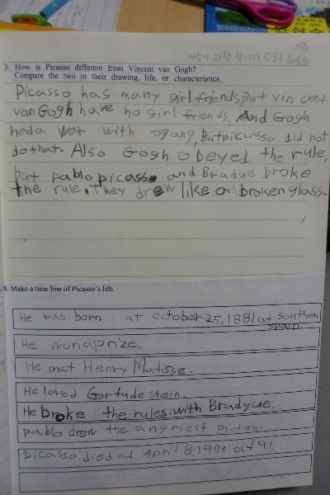 어린이 과학 형사대 CSI
3. How is Picasso different from Vincent van Gogh?
Compare the two in their drawing, life, or characteristics.
Picasso has many girlfriends, But vin cent
van Gogh have no girl friends. And Gogh
had a with , But picusso did not
do that. Also Gogh obeyed the rule,
but pablo picasso and Bradue broke
the rule. They drew like broken glass
4. Make a time line of Picasso's life.
He was born at october 25, 1881 at Southern
Spain.
He won a prize.
He met Henry Matisse.
He loved Gertude stein.
He broke the rules with Bradgue
pablo drew the angriest picture.
picasso died at April 8, 1973 at 91.